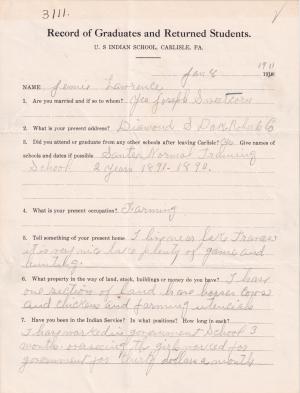 3111.
Record of Graduates and Returned Students.
U. S INDIAN SCHOOL, CARLISLE, PA.
Jan 8 1911
NAME Jennie Lawrence
1. Are you married and if so to whom? Yes Joseph Sweetcorn
2. What is your present address? Diamond S Dak Roberts Co
3. Did you attend or graduate from any other schools after leaving Carlisle? Yes Give names of
schools and dates if possible Santee Normal Training
School 2 years 1891-1890.
4. What is your present occupation? Farming
5. Tell something of your present home I live near lake Traverse
it is very nice lake plenty of game and
hunting.
6. What property in the way of land, stock, buildings or money do you have? I have
one section of land have horses cows
and chickens and farming utensils
7. Have you been in the Indian Service? In what positions? How long in each?
I have worked in government School 3
months overseeing the girls worked for
government for thirty dollars a month